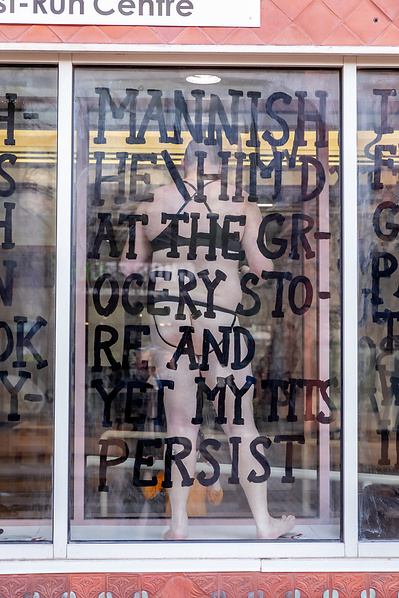 st-Run Centre
MANNISH
HE\HIM'D
AT THE GR-
OCERY STO-
RE AND
YET MY TITS
PERSIST